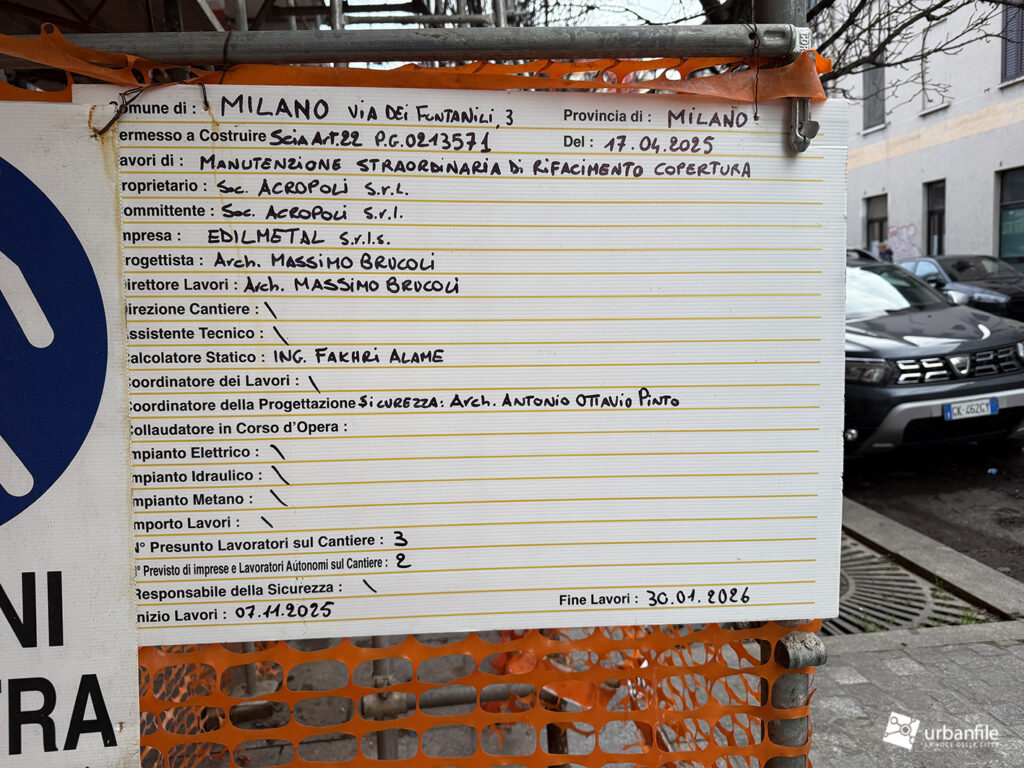 omune di : MILANO VIA DEI FUNTANILI, 3 Provincia di : MILANO
ermesso a Costruire Scia Art.22 P.G.0213571 Del : 17.04.2025
avori di : MANUTENZIONE STRAORDINARIA DI RIFACIMENTO COPERTURA
roprietario : Soc. ACROPOLI S.r.L.
ommittente : Soc. ACROPOLI S.r.l.
mpresa : EDILMETAL S.r.l.s.
rogettista : Arch. MASSIMO BRUCOLI
irettore Lavori : Arch. MASSIMO BRUCOLI
irezione Cantiere : \
ssistente Tecnico : \
alcolatore Statico : ING. FAKHRI ALAME
oordinatore dei Lavori : \
oordinatore della Progettazione SICUREZZA: Arch. ANTONIO OTTAVIO PINTO
ollaudatore in Corso d'Opera :
mpianto Elettrico : \
mpianto Idraulico : \
mpianto Metano : \
mporto Lavori : \
N° Presunto Lavoratori sul Cantiere : 3
° Previsto di imprese e Lavoratori Autonomi sul Cantiere : 2
Responsabile della Sicurezza : \
nizio Lavori : 07.11.2025 Fine Lavori : 30.01.2026
NI
TRA
GK·462GY
urbanfile
LA VOCE DELLE CITTÀ